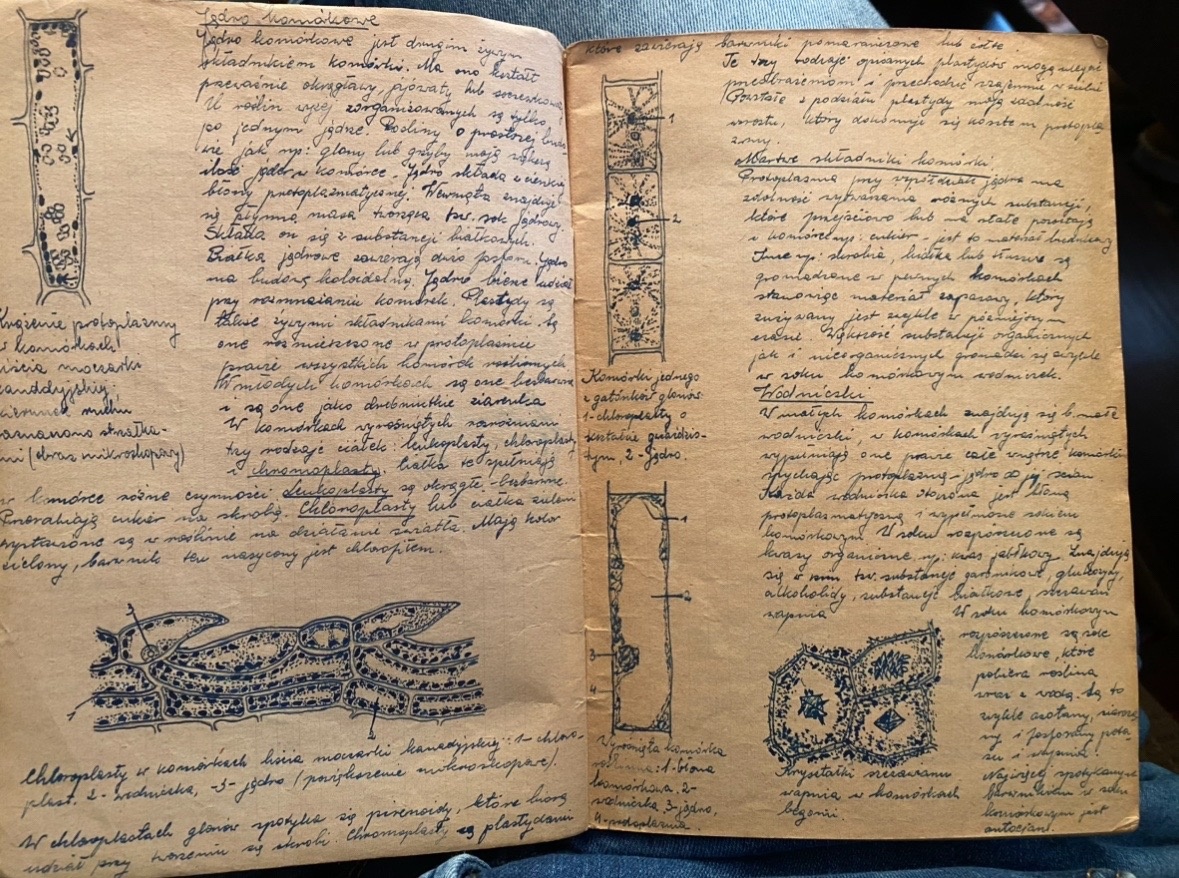 Jądro komórkowe
Jądro komórkowe jest drugim żywym
składnikiem komórki. Ma ono kształt
przeważnie okrągławy, jajowaty lub soczewkowaty
U roślin wyżej zorganizowanych są tylko
po jednym jądrze. Rośliny o prostszej budo-
wie jak np: glony lub grzyby mają większą
ilość jąder w komórce. Jądro składa z cienkiej
błony protoplazmatycznej. Wewnątrz znajduje
się płynna masa tworząca tzw. sok jądrowy.
Składa on się z substancji białkowych.
Białka jądrowe zawierają dużo fosforu. Jądro
ma budowę koloidalną. Jądro bierze udział
przy rozmnażaniu komórek. Plastydy są
także żywymi składnikami komórki. Są
one rozmieszczone w protoplazmie
prawie wszystkich komórek roślinnych
W młodych komórkach są one bezbarwne
i są one jako drobniutkie ziarenka
W komórkach wyrośniętych rozróżniamy
trzy rodzaje ciałek: leukoplasty, chloroplasty
i chromoplasty. Ciałka te spełniają
w komórce różne czynności. Leukoplasty są okrągłe-bezbarwne.
Przerabiają cukier na skrobię. Chloroplasty lub ciałka zieleni
wykształcone są w roślinie na działanie światła. Mają kolor
zielony, barwnik ten nazywany jest chlorofilem.
Krążenie protoplazmy
w komórkach
liścia moczarki
kanadyjskiej:
kierunek ruchu
oznaczono strzałka-
mi (obraz mikroskopowy)
3
1
2
Chloroplasty w komórkach liścia moczarki kanadyjskiej: 1- chloro-
plast. 2- wodniczka, -3- jądro (powiększenie mikroskopowe).
W chloroplastach glonów spotyka się pirenoidy, które biorą
udział przy tworzeniu się skrobi. Chromoplasty są plastydami
które zawierają barwniki pomarańczowe lub żółte.
Te trzy rodzaje opisanych plastydów mogą ulegać
przeobrażeniom i przechodzić wzajemnie w siebie
Powstałe z podziału plastydy mają zdolność
wzrostu, który dokonuje się kosztem protopla
zmy.
Martwe składniki komórki.
Protoplazma przy współudziale jądra ma
zdolność wytwarzania różnych substancji,
które przejściowo lub na stałe pozostają
w komórce np: cukier - jest to materiał budulcowy
Inne np: skrobia, białka lub tłuszcze są
gromadzone w pewnych komórkach
stanowiąc materiał zapasowy, który
zużywany jest zwykle w późniejszym
czasie. Większość substancji organicznych
jak i nieorganicznych gromadzi się zwykle
w soku komórkowym wodniczek.
Wodniczki
W małych komórkach znajdują się b. małe
wodniczki w komórkach wyrośniętych
wypełniają one prawie całe wnętrze komórki
spychając protoplazmę i jądro do jej ścian
Każda wodniczka otoczona jest błoną
protoplazmatyczną i wypełniona sokiem
komórkowym. W soku rozpuszczone są
kwasy organiczne, np: kwas jabłkowy. Znajdują
się w nim tzw. substancje garbnikowe, glukozydy,
alkoholidy, substancje białkowe, szczawian
wapnia
W soku komórkowym
rozpuszczone są sole
które
pobiera roślina
wraz z wodą. Są to
zwykle azotany, siarcza
ny i fosforany pota-
su i wapnia.
Najczęściej spotykanym
barwnikiem w soku
komórkowym jest
antocjan.
1
2
Komórki jednego
z gatunków glonów:
1- chloroplasty o
kształcie gwiaździs-
tym, 2- jądro.
1
2
3
4
Wyrośnięta komórka
roślinna: 1- błona
komórkowa, 2-
wodniczka, 3- jądro,
4- protoplazma.
Kryształki szczawianu
wapnia w komórkach
begonii.